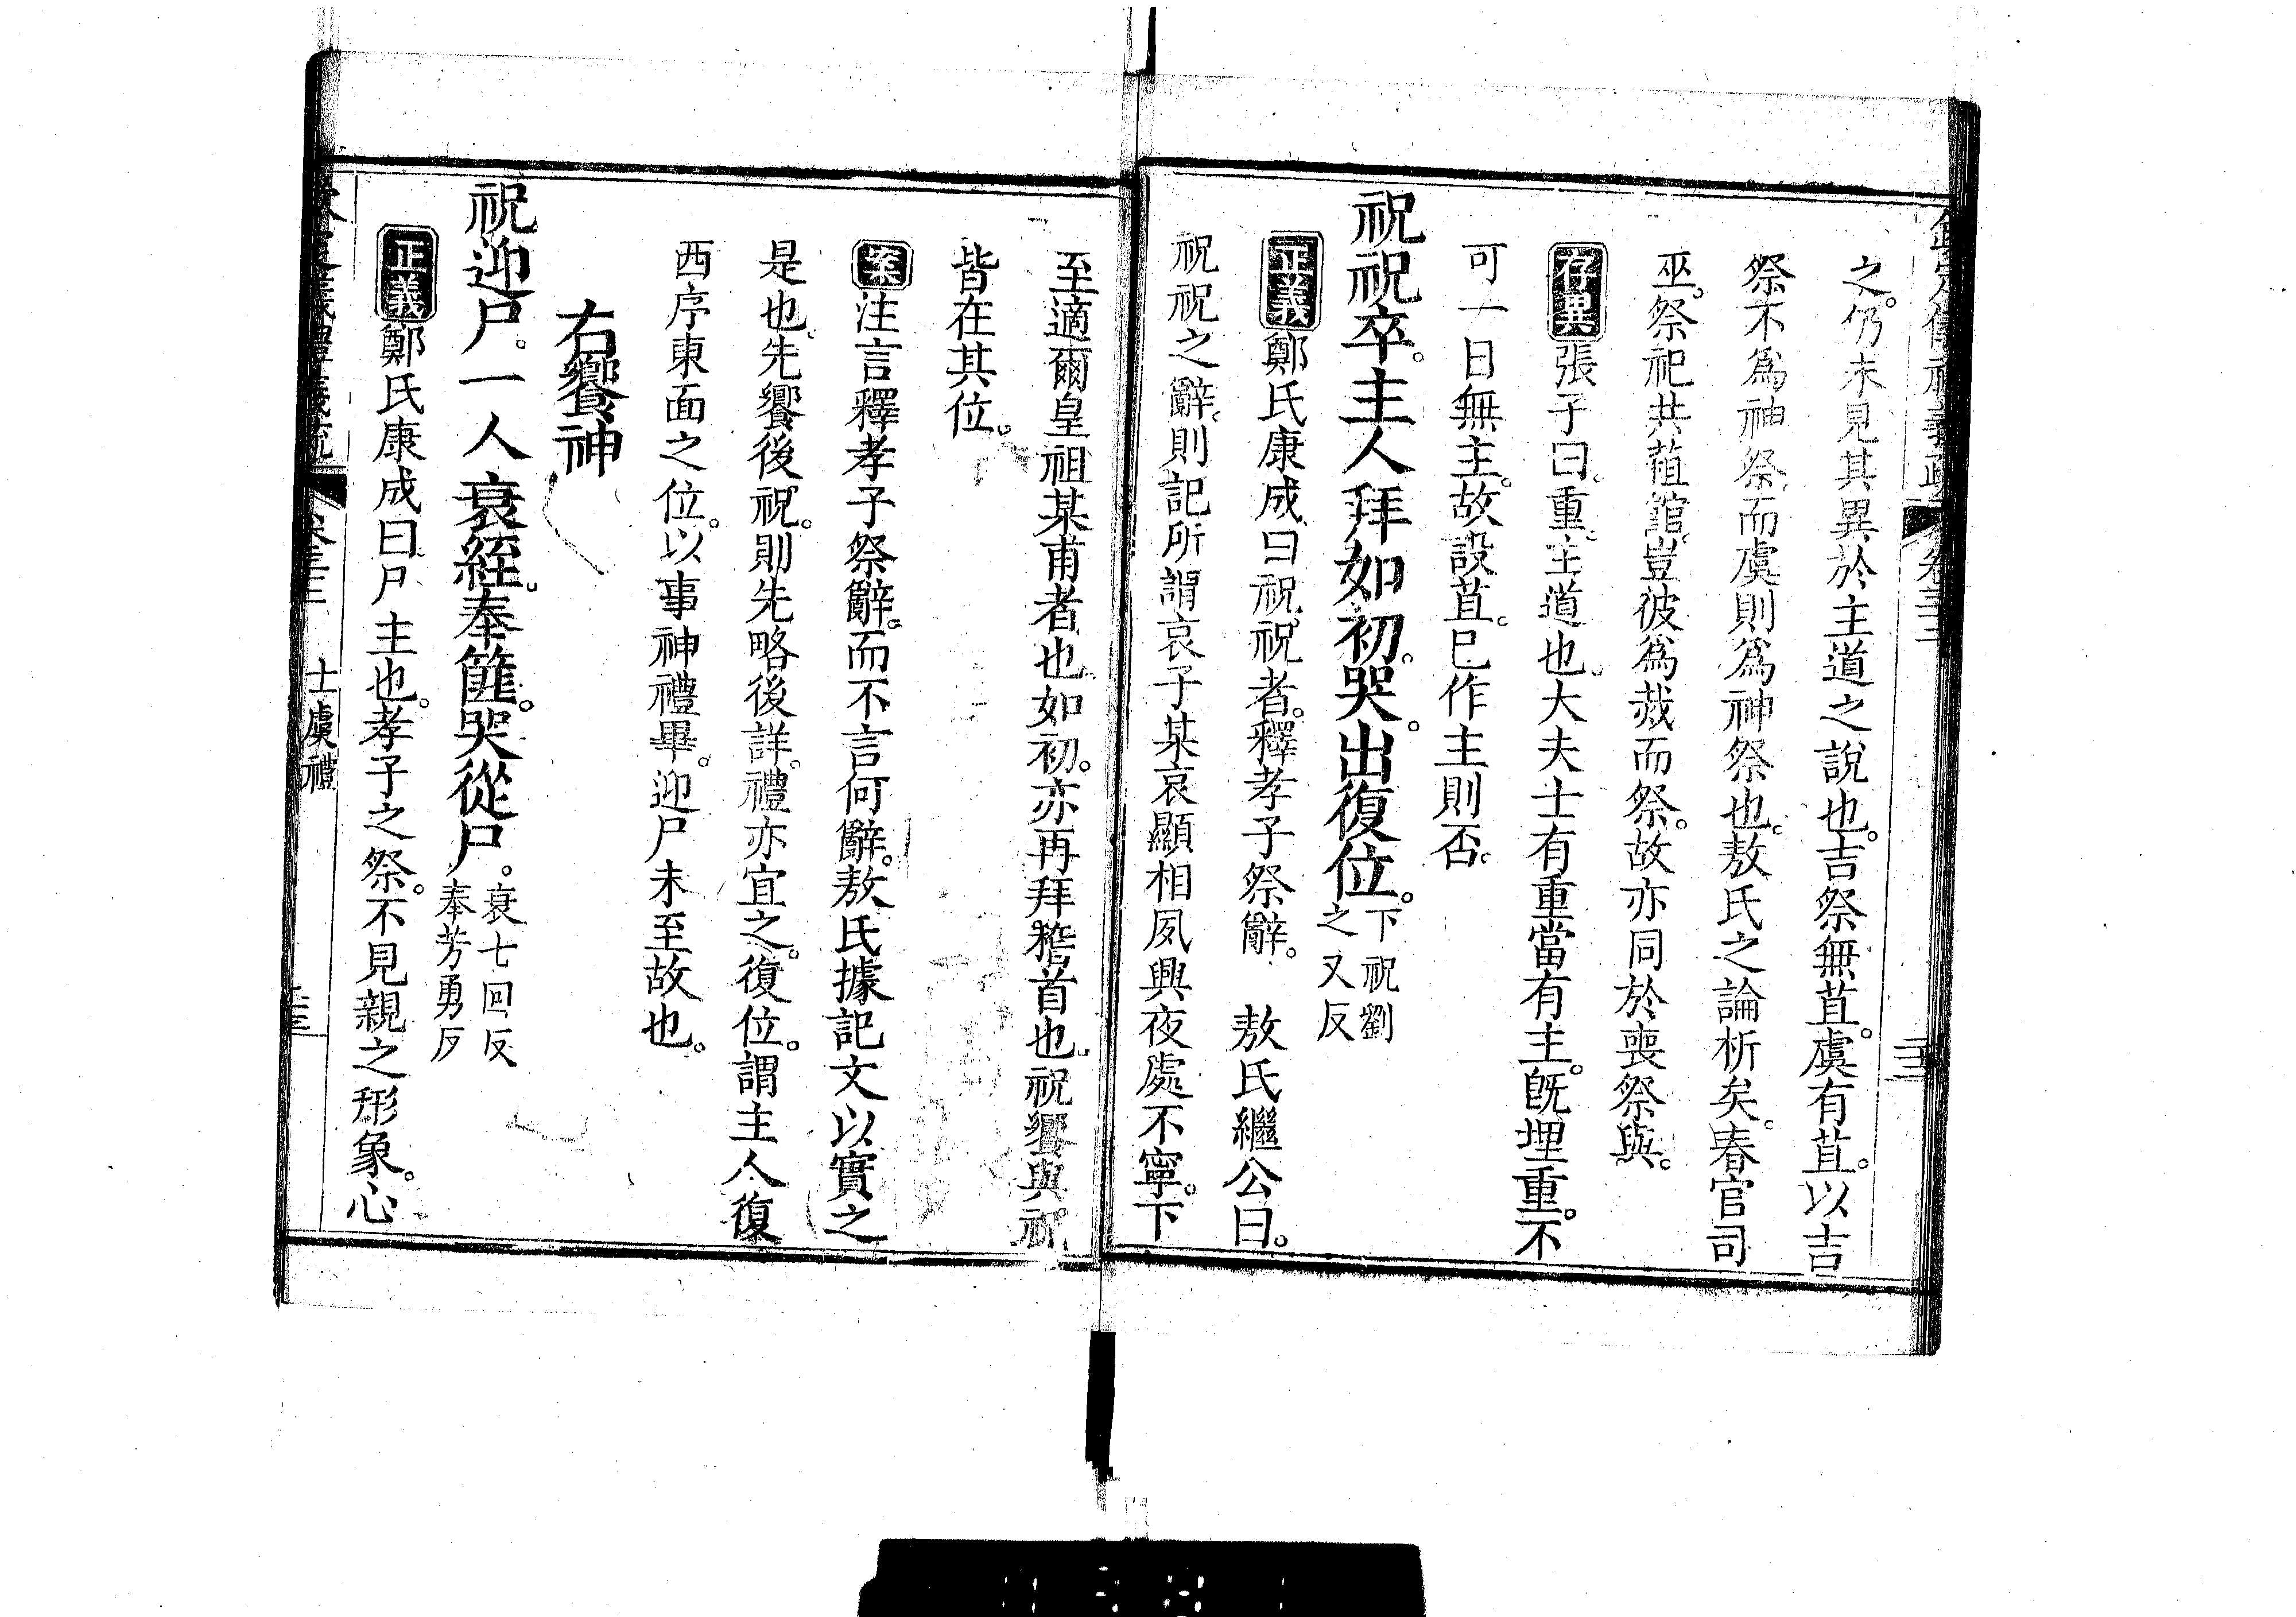 之。仍未見其異於主道之說也。吉祭無苴。虞有苴。以吉
祭不爲神祭。而虞則爲神祭也。敖氏之論析矣。春官司
巫。祭祀共蒩館。豈彼爲烖而祭。故亦同於喪祭與。
存異張子曰。重。主道也。大夫士有重當有主。旣埋重。不
可一日無主。故設苴。已作主則否。
祝祝卒。主人拜如初。哭。出復位。下祝劉
之又反
正義鄭氏康成曰。祝。祝者。釋孝子祭辭。 敖氏繼公曰。
祝祝之辭。則記所謂哀子某哀顯相夙興夜處不寧。下
至適爾皇祖某甫者也。如初。亦再拜稽首也。祝饗與祝。
皆在其位。
案注言釋孝子祭辭。而不言何辭。敖氏據記文以實之
是也。先饗後祝。則先略後詳。禮亦宜之。復位。謂主人復
西序東面之位。以事神禮畢。迎尸未至故也。
右饗神
祝迎尸。一人衰絰。奉篚。哭從尸。衰七回反
奉芳勇反
正義鄭氏康成曰。尸主也。孝子之祭。不見親之形象。心
士虞禮